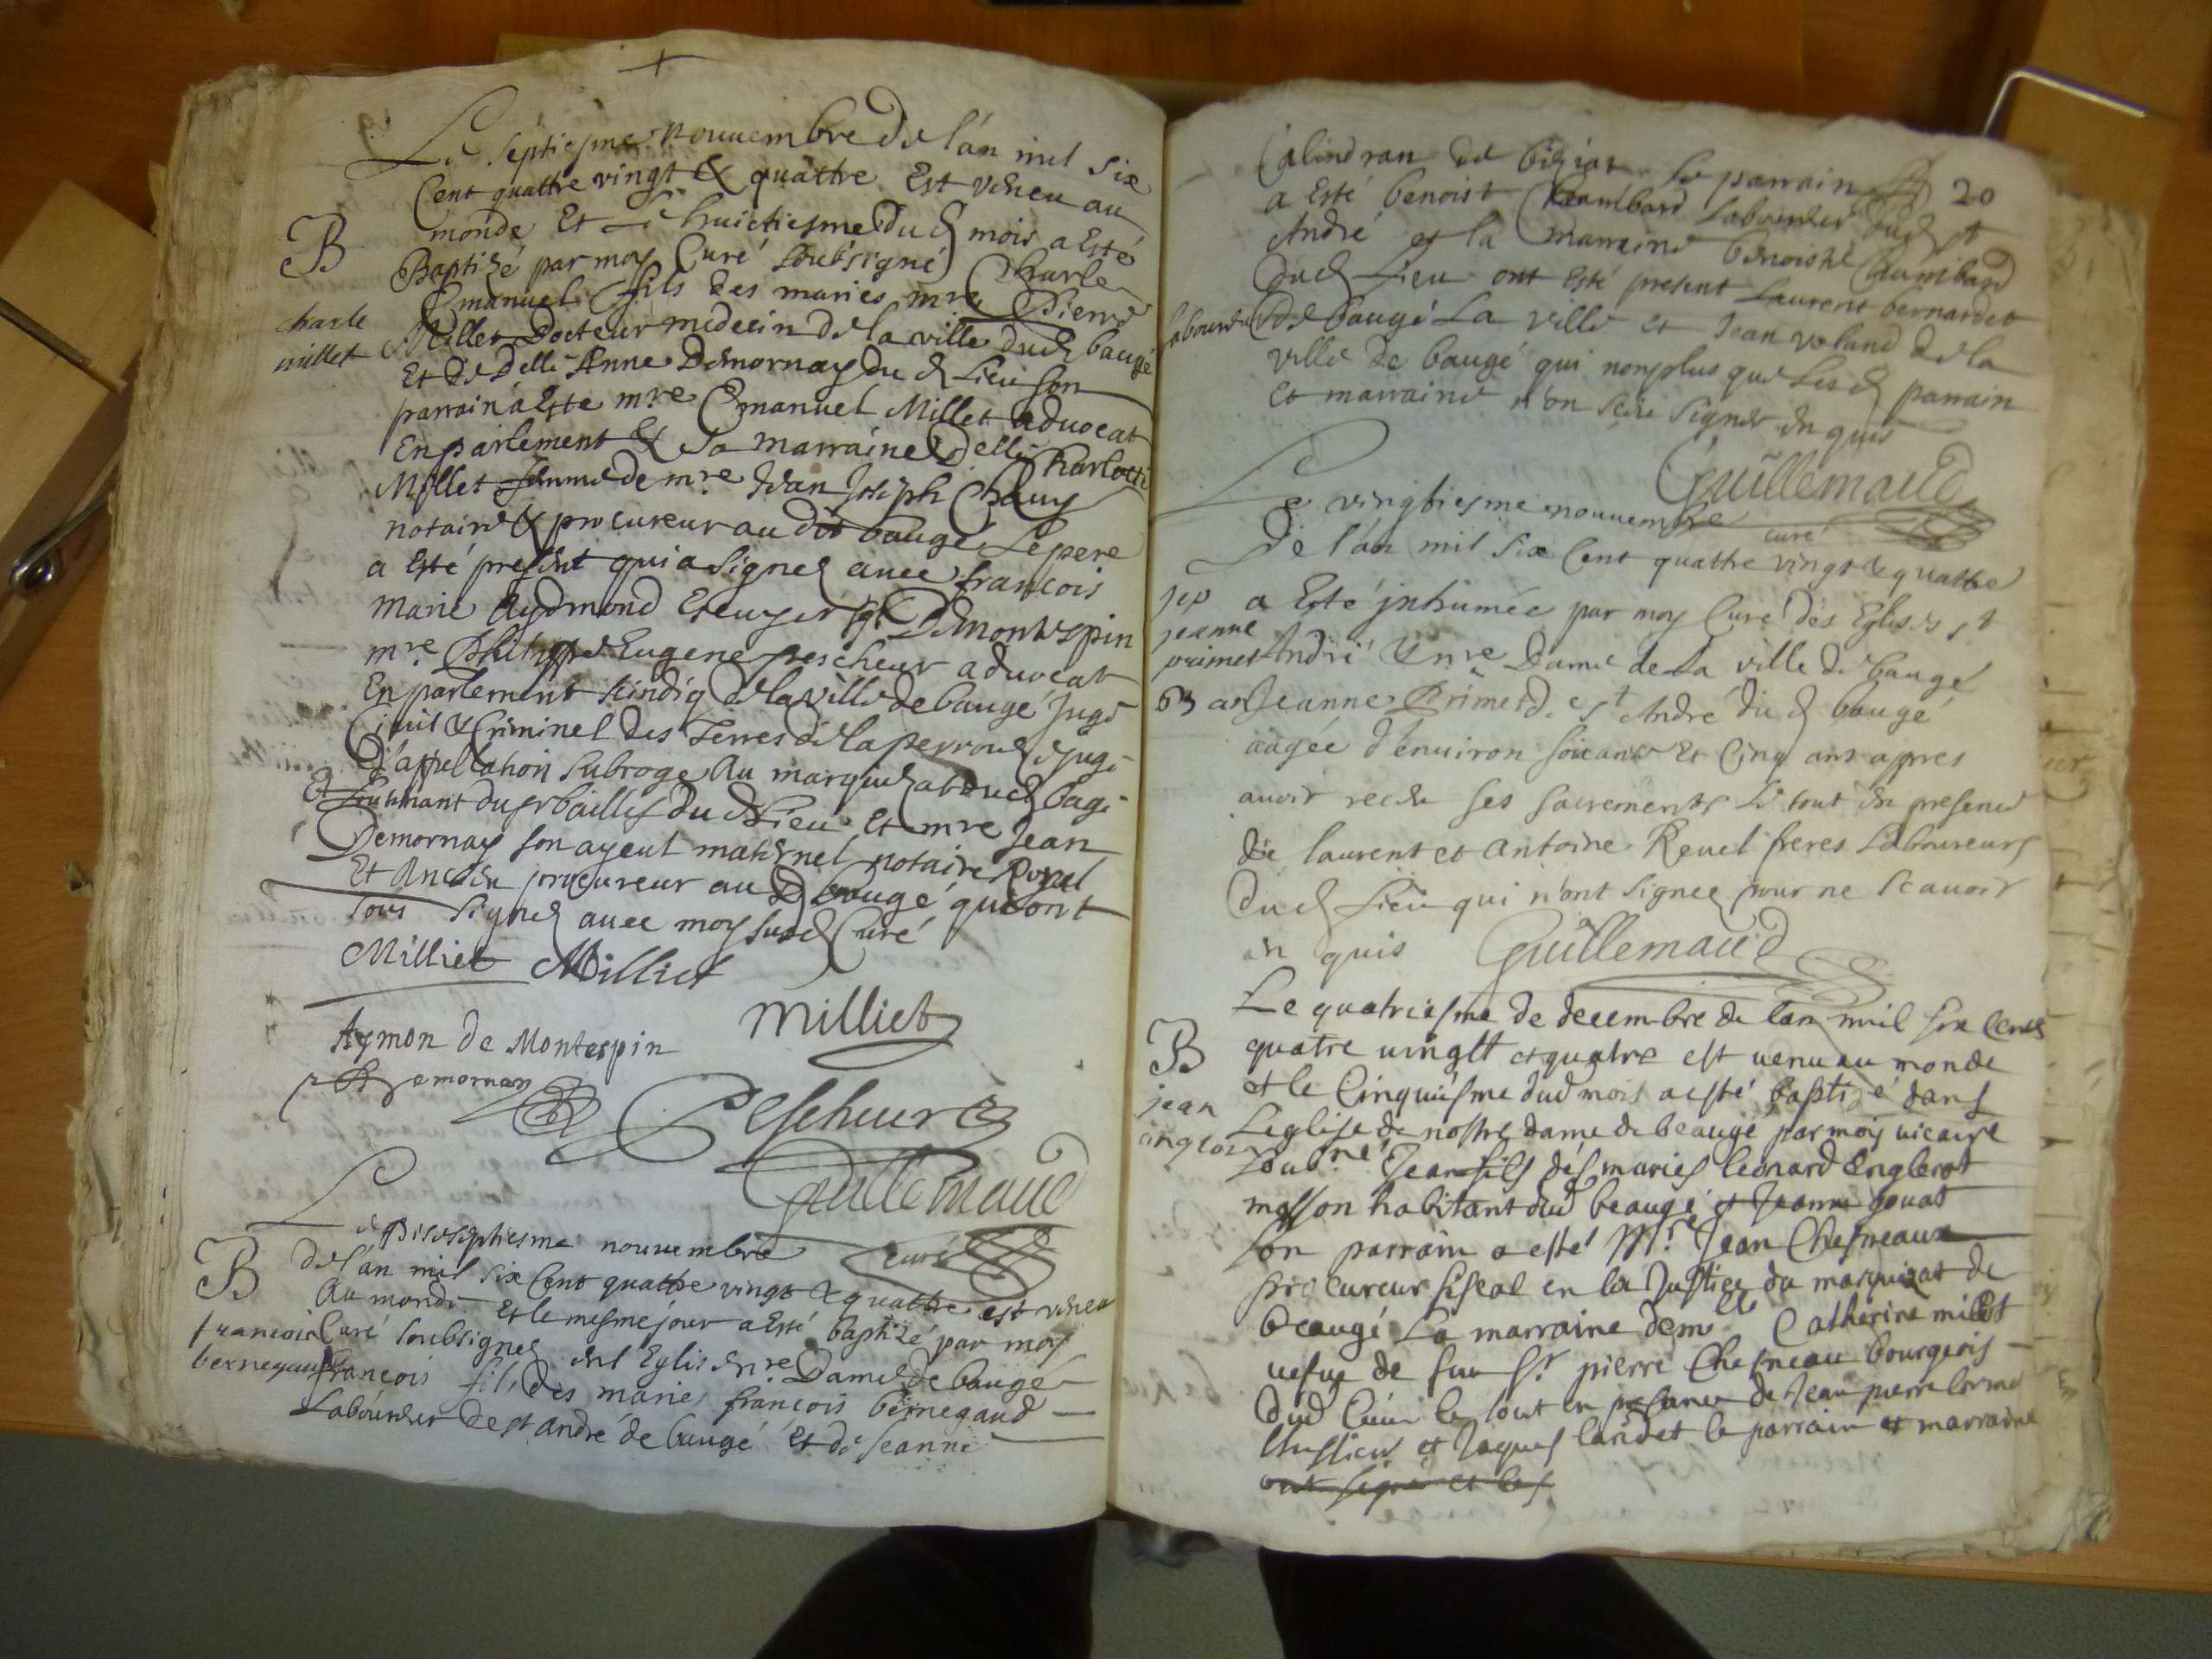 Le septiesme nouuembre de l'án mil six
Cent quattre vingt & quattre Est veneu au
monde Et le huictiesme du d mois a Esté
B
Baptizé par moy Curé soubsigné Charle
Emanuel fils des maries mre Pierre
charle
millet
Millet Docteur medecin de la ville dud baugé
Et de Delle Anne Demornay du d Lieu son
parrain a Esté mre Emanuel Millet aduocat
En parlement & sa marraine Delle Charlotte
Millet femme de mre Jean Joseph Chauy
notaire & procureur au dit baugé Le pere
a Esté present qui a signé auec françois
marie Aydmond Escuyer sgr Demontespin
mre Philippe Eugene pescheur aduocat
En parlement sindiq de la ville de baugé Juge
Ciuil & Criminel des Terres de la perrouse Juge
D'appellation subrogé Au marquisat dud bagé
Et Lieutenant du sr baillif du d Lieu Et mre Jean
Demornay son ayeul maternel notaire Royal
Et Ancien procureur au d baugé qui ont
tous signé auec moy susd Curé
Milliet Milliet
Milliet
Aymon de Montespin
Demornay
Pescheur
Guillemaud
curé
Le Dixseptiesme nouuembre
B
de l'án mil six Cent quattre vingt & quattre est veneu
Au monde Et le mesme jour a Esté baptizé par moy
francois
bernegaud
Curé soubsigné en l'Eglise nre Dame de baugé
françois fils des maries françois bernegaud
Laboureur de st André de baugé Et de Jeanne
20
Calindran de biziat Le parrain
a Esté benoist Chambard Laboureur dud st
André et la marraine benoiste Chambard
dud Lieu ont Esté present Laurent bernardet
laboureur de baugé La ville et Jean voland de la
ville de baugé qui nonplus que Lesd parrain
et marraine n'on sceu signer en quis
Guillemaud
curé
Le vingtiesme nouuembre
De l'án mil six Cent quattre vingt & quattre
sep
jeanne
primet
65 an
a Esté jnhumée par moy Curé des Eglises st
André & nre Dame de La ville de baugé
Jeanne Primet de st André du d baugé
aagée d'enuiron soixante Et Cinq ans appres
auoir receu ses sacrements Le tout en presence
de laurent et antoine Reuel freres Laboureurs
du d Lieu qui n'ont signé pour ne scauoir
en quis Guillemaud
Le quatriesme de decembre de lan mil six cents
B
quatre uingtt et quatre est uenu au monde
et le Cinquiesme dud mois a esté baptizé dans
jean
anglois
Leglise de nostre dame de beaugé par moy uicaire
soubné Jean fils des mariés leonard Englerot
masson habitant dud beaugé et Jeanne gouat
son parrain a esté Mre Jean Chesneaux
procureur fiscal en la Justice du marquizat de
beaugé La marraine demlle Catherine millet
uefue de feu Sr pierre Chesneau bourgeois
dud Lieu le tout en presence de Jean pierre lorme
Chussieu et Jaques landet le parrain et marraine
ont signé et les